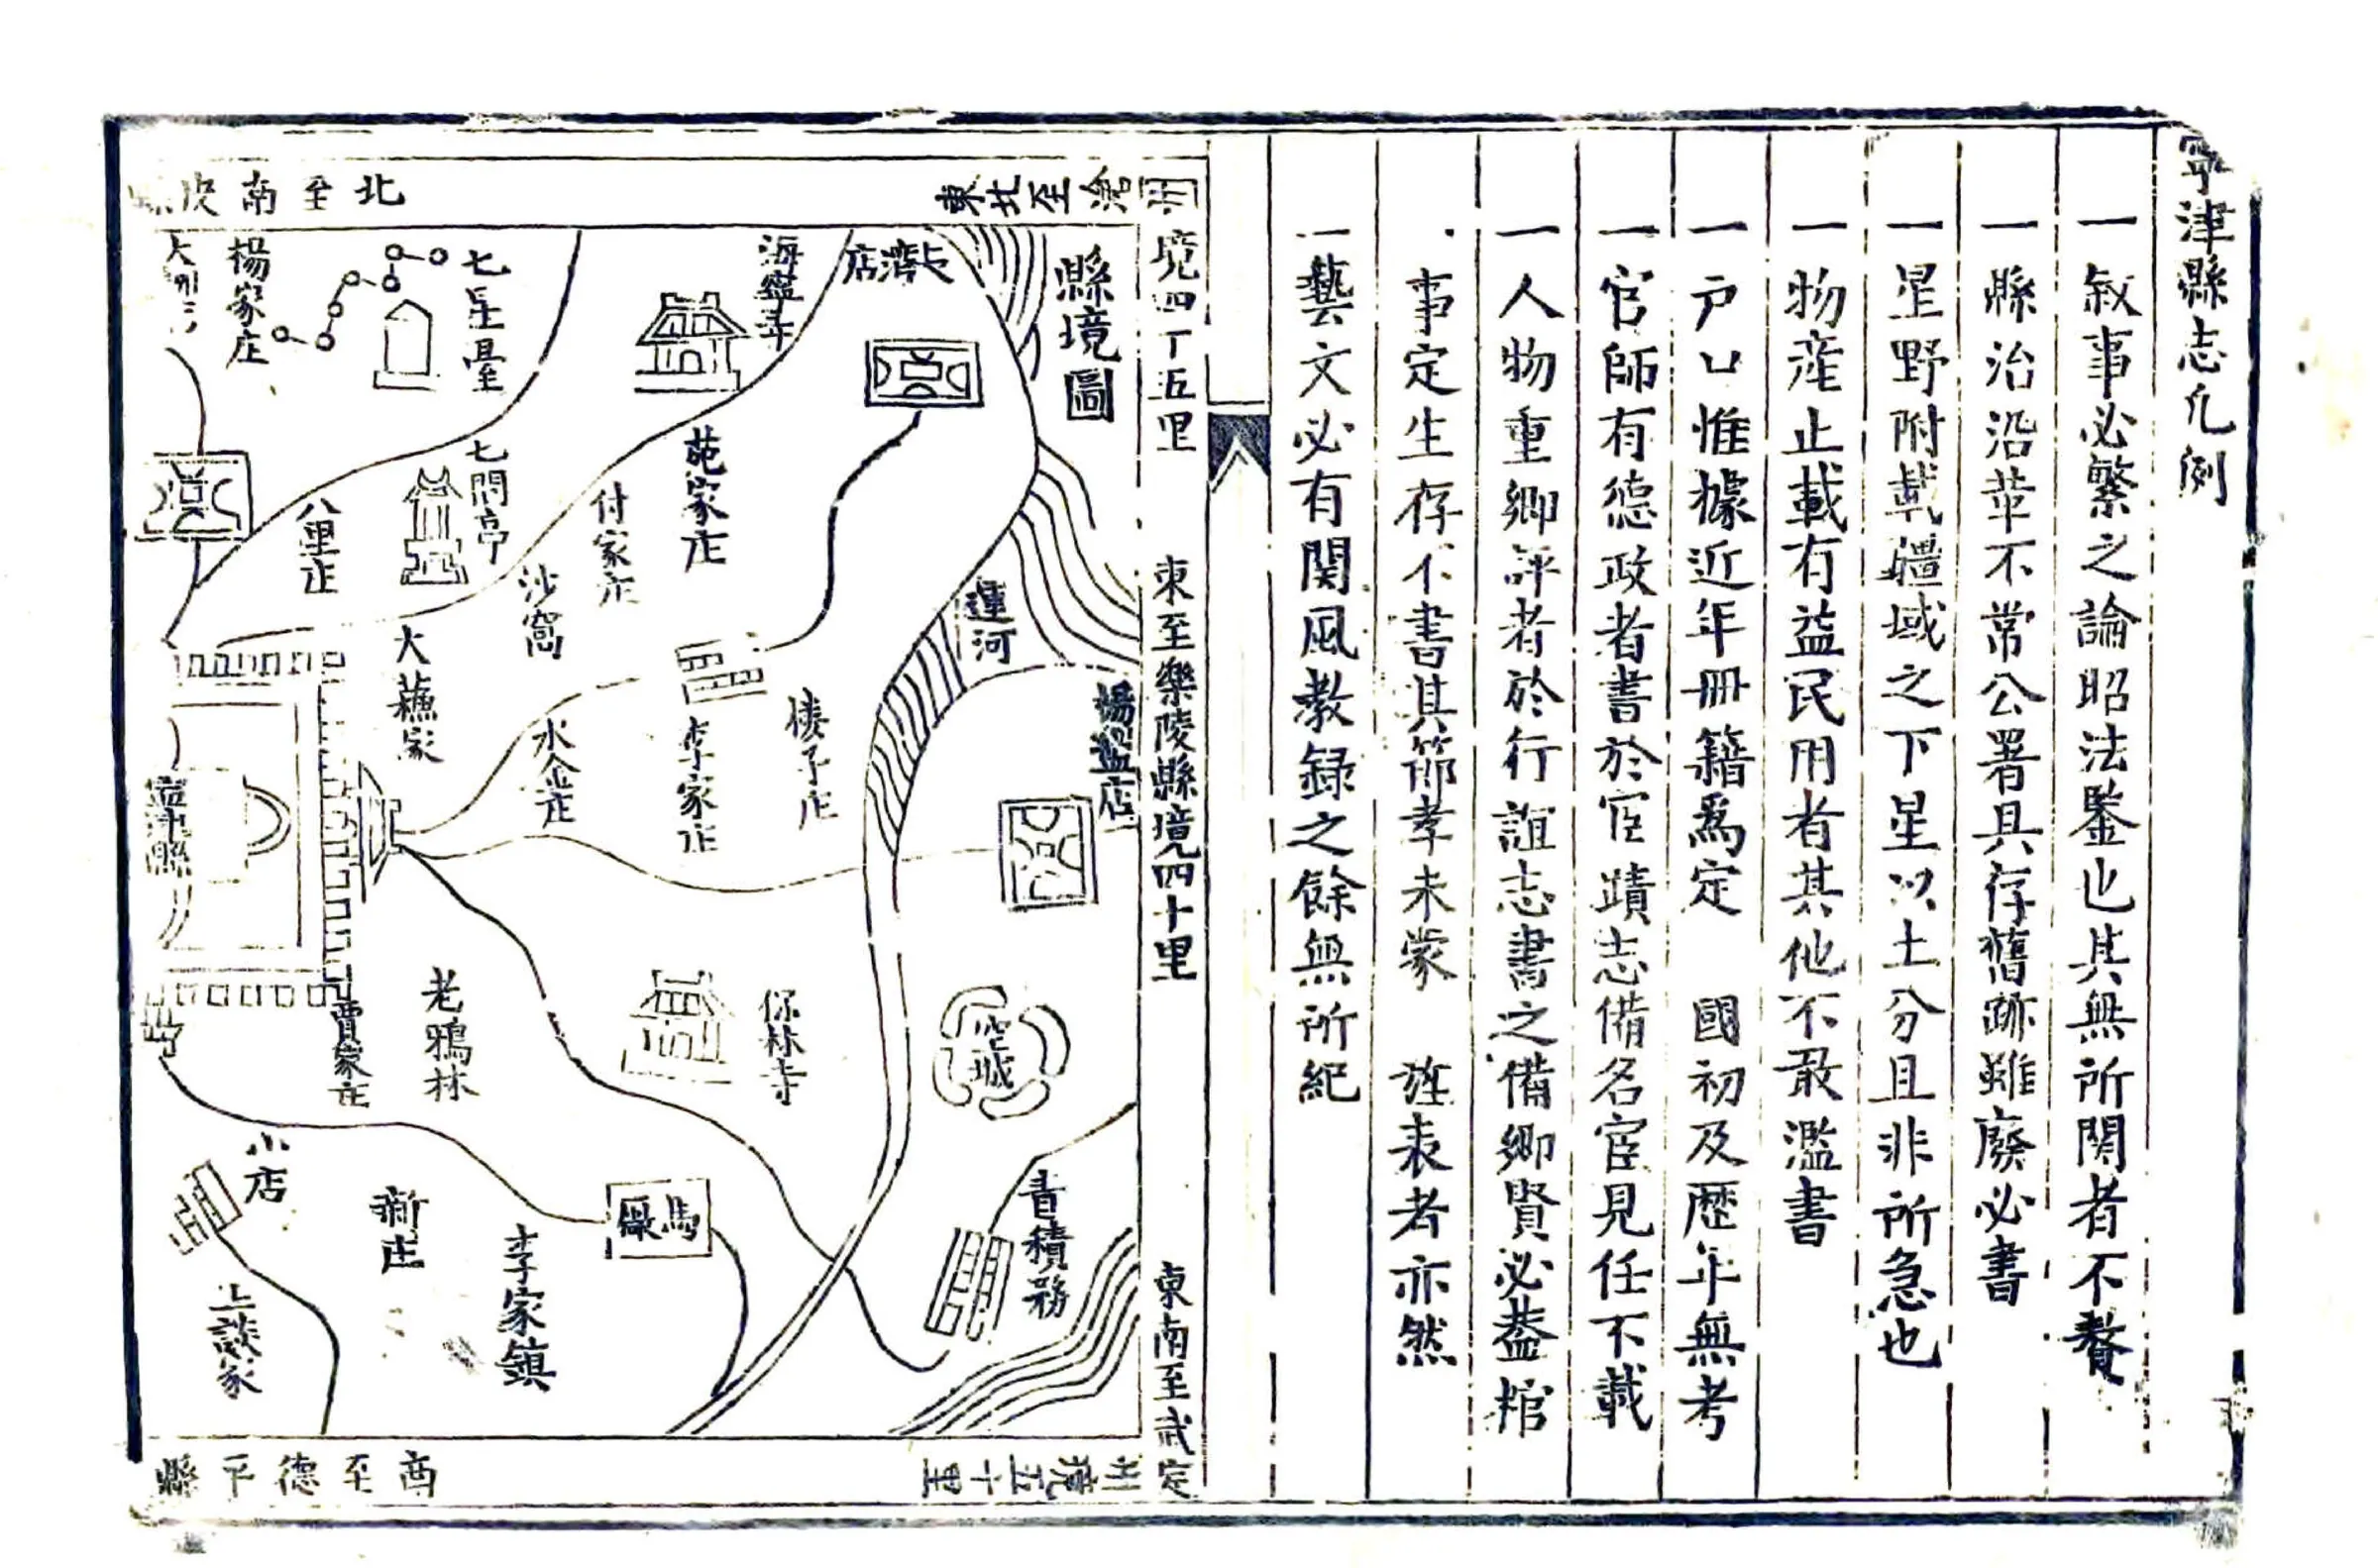 寧津縣志凡例
一敘事必繁之論昭法鑒也其無所関者不贅
一縣治沿革不常公署具存舊跡雖廢必書
一星野附載疆域之下星以土分且非所急也
一物產止載有益民用者其他不敢濫書
一戸口惟據近年冊籍爲定 國初及歷年無考
一官師有德政者書於宦蹟志備名宦見任不載
一人物重鄉評者於行誼志書之備鄉賢必蓋棺
事定生存不書其節孝未蒙 旌表者亦然
一藝文必有関風教録之餘無所紀
東北至滄州
境四十五里
東至樂陵縣境四十里
東南至武定
州境五十里
北至南皮縣
縣境圖
店
海寧寺
七星臺
楊家庄
苑家庄
付家庄
沙窩
七間亭
八里庄
運河
楊盤店
李家庄
水金庄
大蘓家
寧津縣
空城
保林寺
老鴉林
賈家庄
青積務
馬廠
李家鎮
新庄
小店
上談家
南至德平縣